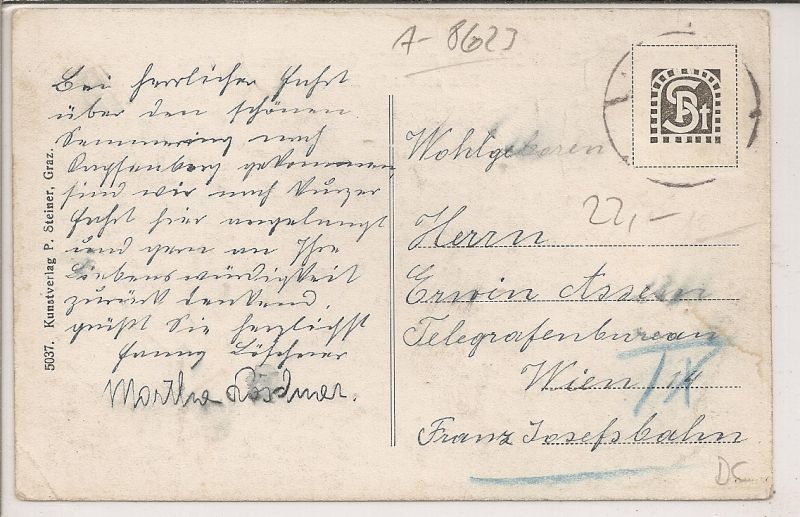 A-8623
Bei herrlicher Fahrt
über den schönen
Semmering nach
Kapfenberg gekommen
sind wir nach kurzer
Fahrt hier angelangt
und gern an Ihre
Liebenswürdigkeit
zurück denkend,
grüßt Sie herzlichst
Fanny Löschner
Martha
5037. Kunstverlag P. Steiner, Graz.
PSt
Wohlgeboren
22,-
Herrn
Erwin
Telegrafenbureau
Wien
IX
Franz Josefsbahn
DC